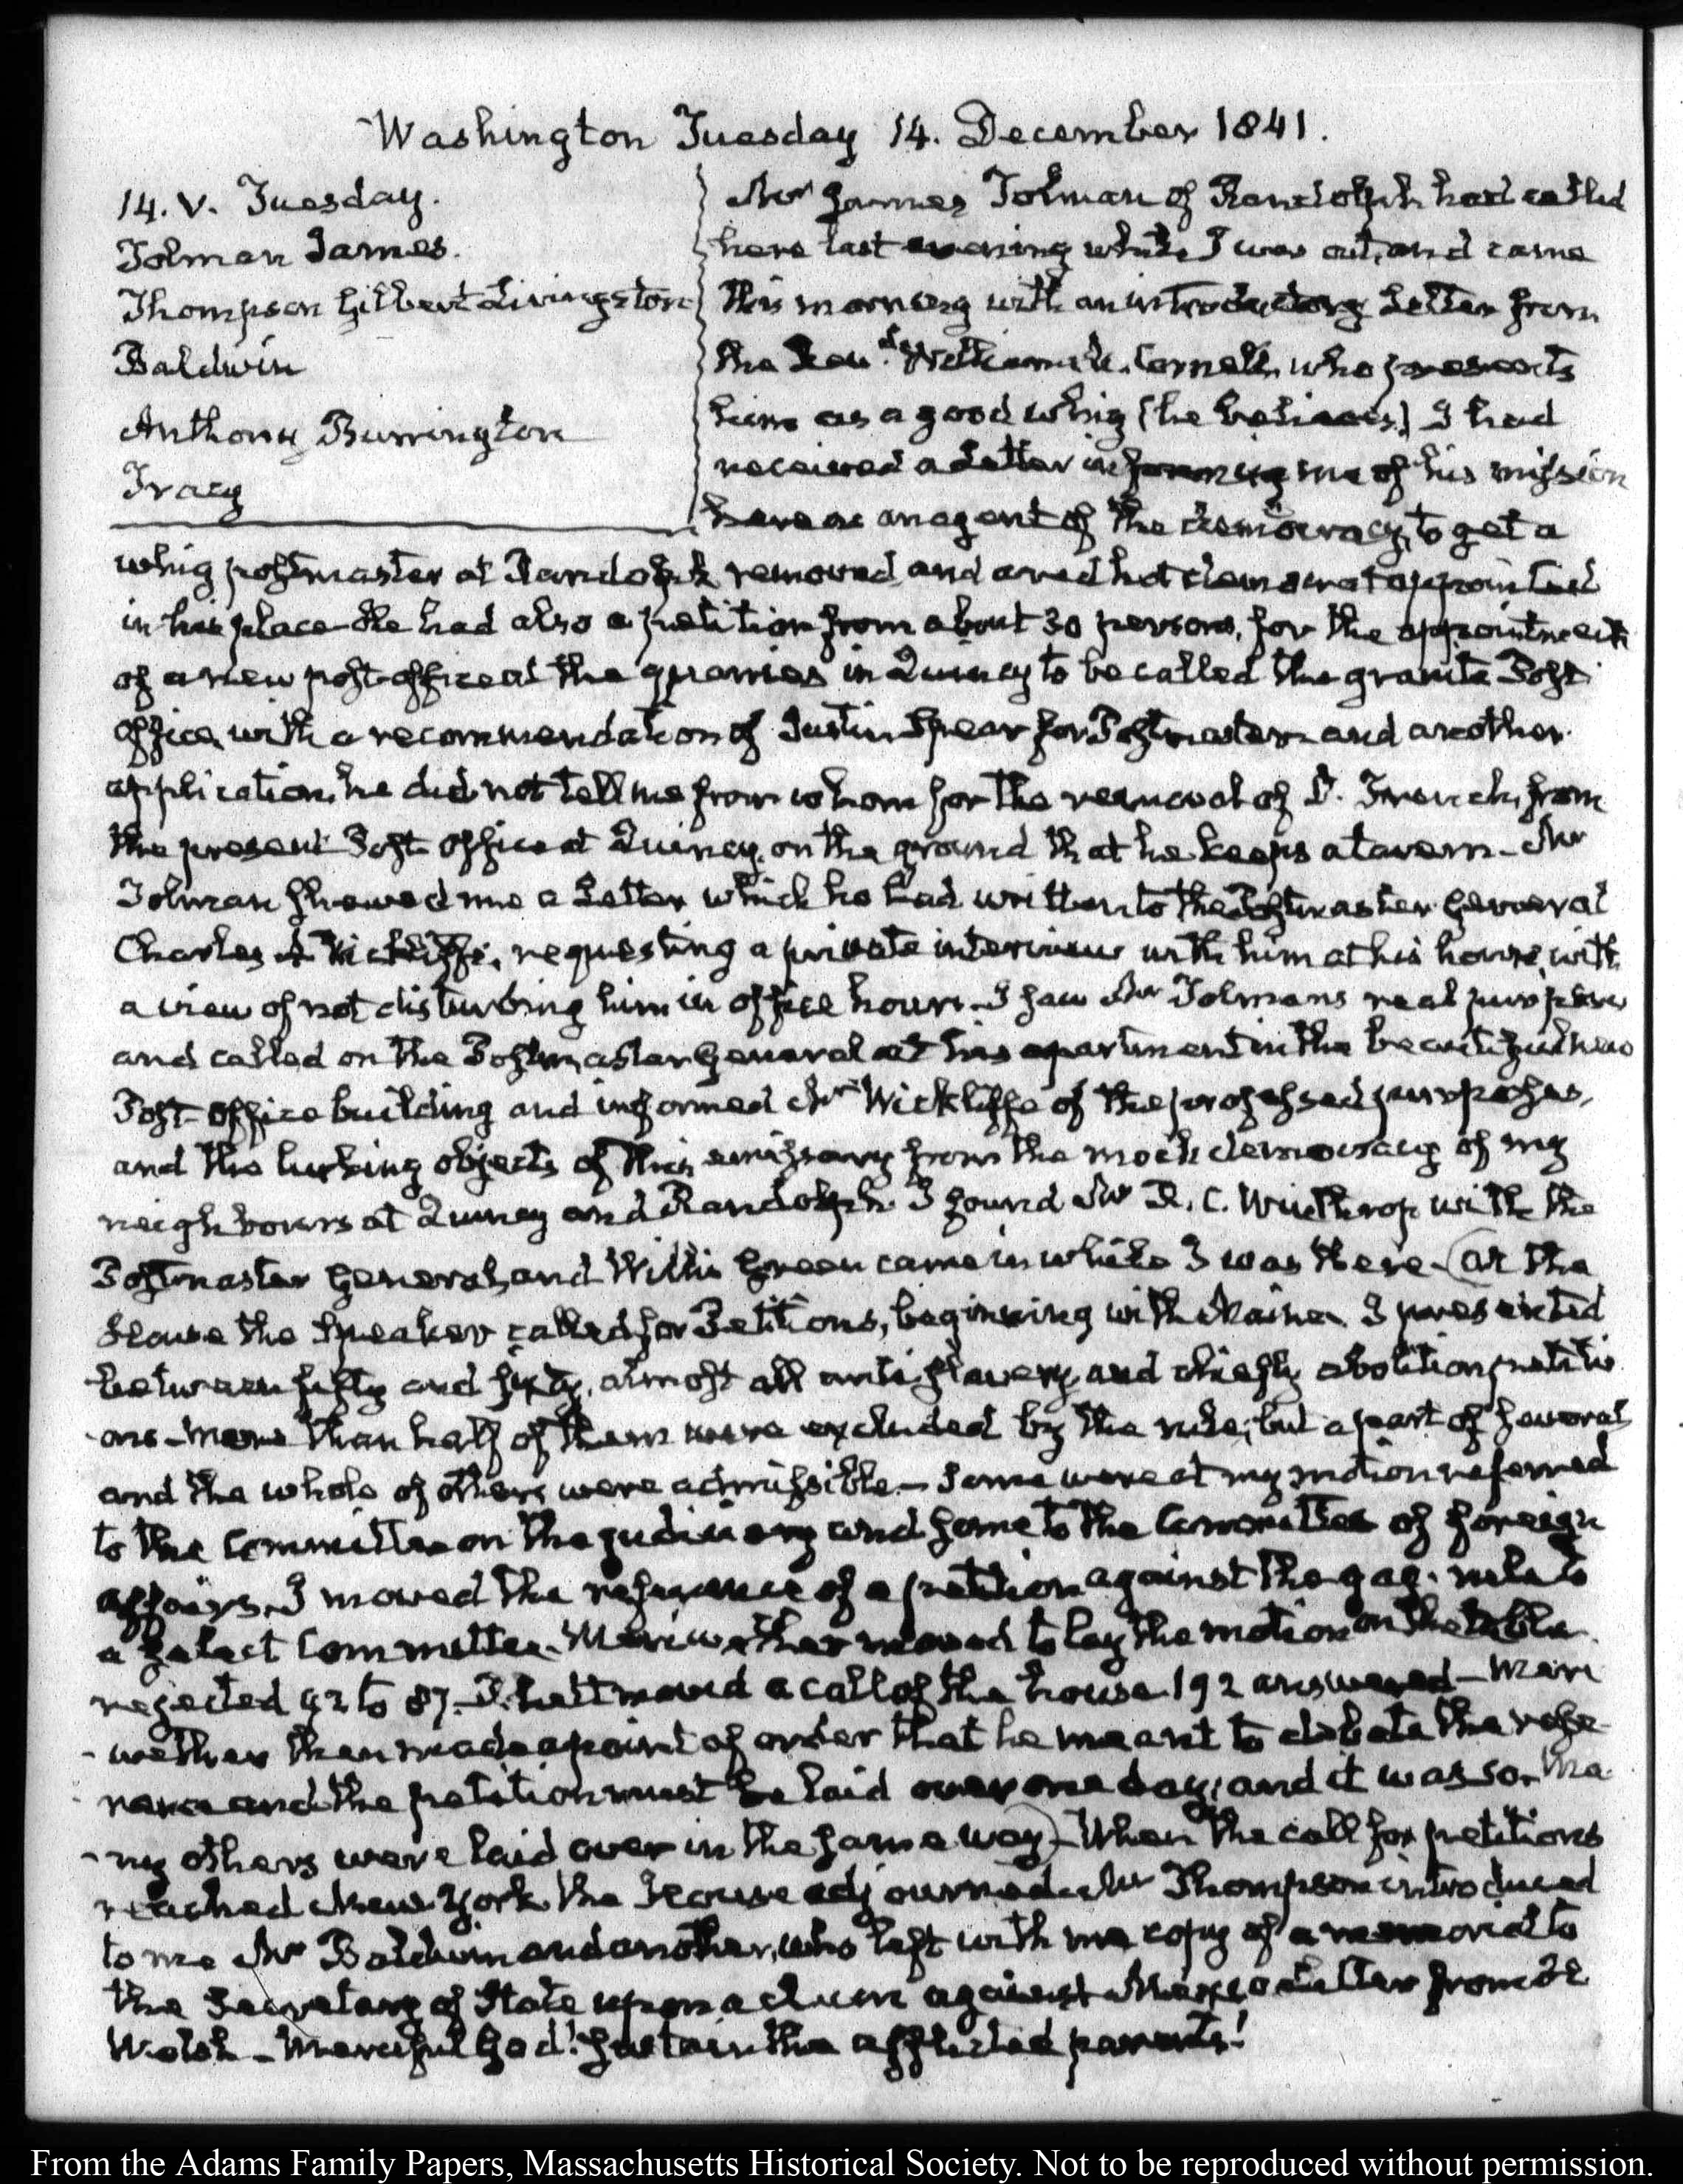 Washington Tuesday 14. December 1841.
14. V. Tuesday.
Tolman James.
Thompson Gilbert Livingston
Baldwin
Anthony Burrington
Tracy
Mr James Tolman of Randolph had called
here last evening while I was out, and came
this morning with an introductory Letter from
the Rev. Cornell, who presents
him as a good whig (he believes) I had
received a Letter informing me of his mission
here as an agent of the democracy, to get a
whig postmaster at Randolph removed, and a red hot democrat appointed
in his place He had also a petition from about 30 persons, for the appointment
of a new post-office at the quarries in Quincy to be called the granite Post
office, with a recommendation of Justin Spear for Postmaster and another
application, he did not tell me from whom for the removal of D. French, from
the present Post office at Quincy, on the ground that he keeps a tavern - Mr
Tolman shewed me a Letter which he had written to the Postmaster General
Charles A Wickliffe, requesting a private interview with him at his house, with
a view of not disturbing him in office hours - I saw Mr Tolmans real purpose
and called on the Postmaster General at his apartment in the beautiful new
Post-office building and informed Mr Wickliffe of the professed purposes,
and the lurking objects of this emissary from the mock democracy of my
neighbours at Quincy and Randolph. I found Mr R. C. Winthrop with the
Postmaster General, and Willis Green came in while I was there - (At the
House the Speaker called for Petitions, beginning with Maine. I presented
between fifty and sixty, almost all anti-slavery, and chiefly abolition petiti-
-ons - more than half of them were excluded by the rule; but a part of several
and the whole of others were admissible - Some were at my motion referred
to the Committee on the judiciary and some to the Committee of foreign
affairs. I moved the reference of a petition against the gag-rule to
a select Committee. Meriwether moved to lay the motion on the table
rejected 92 to 87. I. he moved a call of the house 192 answered - Meri
-wether then made a point of order that he meant to debate the refe-
-rence and the petition must be laid over one day; and it was so. Ma-
-ny others were laid over in the same way) - When the call for petitions
reached New-York the House adjourned. Mr Thompson introduced
to me Mr Baldwin and another, who left with me copy of a memorial to
the Secretary of State upon a claim against Mexico Letter from Dr
Welsh - Merciful God! sustain the afflicted parents!
From the Adams Family Papers, Massachusetts Historical Society. Not to be reproduced without permission.